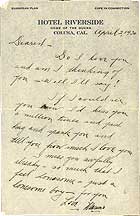 EUROPEAN PLAN
CAFE IN CONNECTION
HOTEL RIVERSIDE
HOME OF THE DUCKS
COLUSA, CAL.
April 3, 192
Dearest,
Do I love you
and am I thinking of
you well I'll say!
If I could see
you kiss you
a million times and just
hug and you and
tell you how much I love you
I miss you awfully
already so much that I
feel lonesome just a
lonesome boy for you
Love